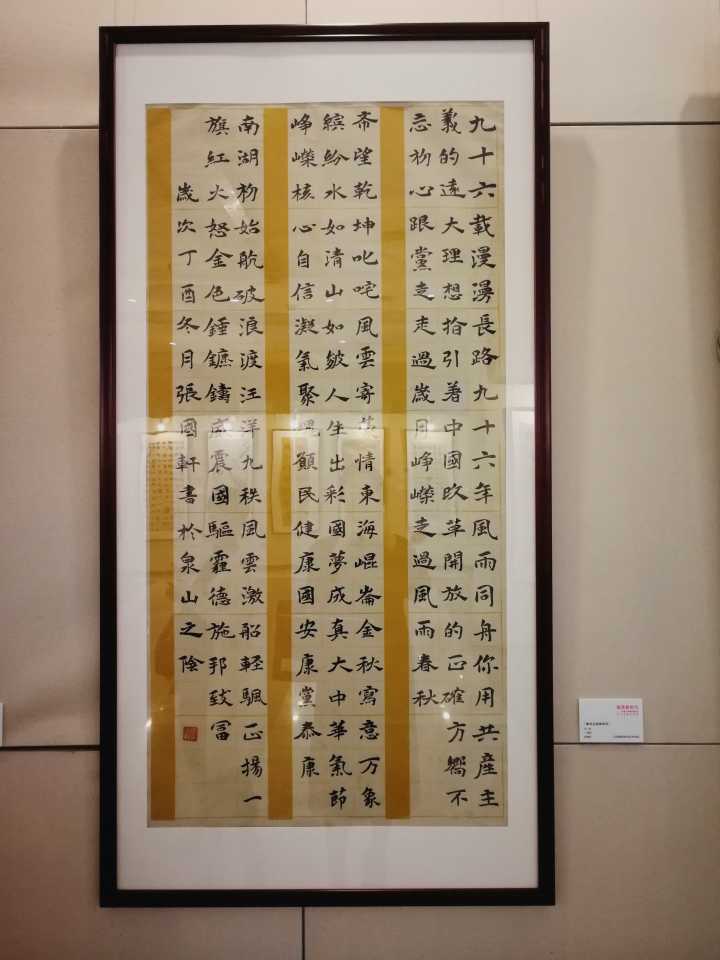 九十六載漫漫長路九十六年風雨同舟你用共產主
義的遠大理想指引著中國改革開放的正確方嚮不
忘初心跟黨走走過歲月崢嶸走過風雨春秋
望乾坤叱咤風雲寄情東海崐崙金秋寫意万象
缤紛水如清山如皴人生出彩國夢成真大中華氣節
崢嶸核心自信凝氣聚魂願民健康國安康黨泰康
南湖初始航破浪渡汪洋九秩風雲激船輕颿正揚一
旗紅火怒金色錘鐮鑄威震國驅霾德施邦致富
歲次丁酉冬月張國軒書於泉山之陰